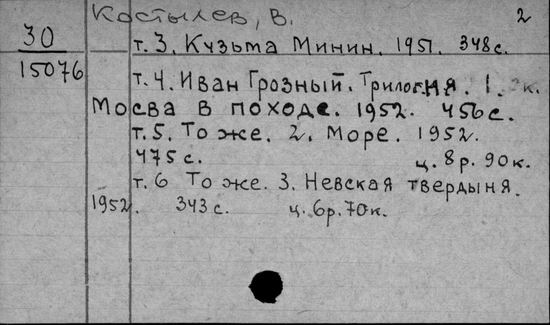 Костылев, В. 2
30
15076
т. 3. Кузьма Минин. 1951. 348 с.
т. 4. Иван Грозный. Трилогия. 1.
Мосва в походе. 1952. 456 с.
т. 5. То же. 2. Море. 1952.
475 с. ц. 8 р. 90 к.
т. 6 То же. 3. Невская твердыня.
1952. 343 с. ц. 6 р. 70 к.